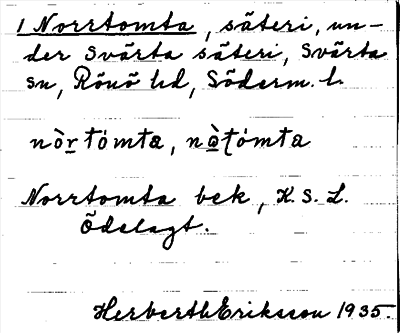 1 Norrtomta, säteri, un-
der Svärta säteri, Svärta
sn, Rönö hd, Söderm. l.
nòr tómta, nòtómta
Norrtomta bek, K.S.L.
Ödelagt.
Herberth Eriksson 1935.